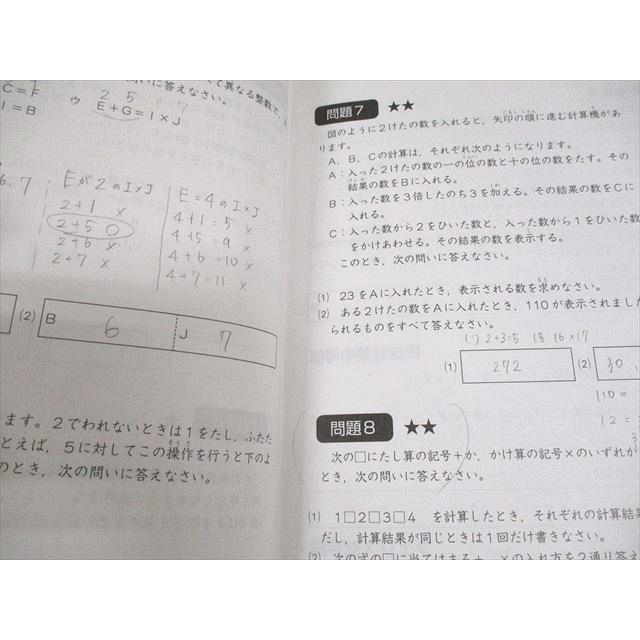 C=F
て異なる整数で,
問いに答えなさい。
I=B
ウ E+G=I×J
2 5 1 7
6、7
Eが2のI×J
2+1 ×
2+5 ○
2+6 ×
2+7 ×
E=4のI×J
4+1=5 ×
4+5=9 ×
4+6=10 ×
4+7=11 ×
(2) B 6 J 7
ます。2でわれないときは1をたし,ふたた
とえば,5に対してこの操作を行うと下のよ
のとき,次の問いに答えなさい。
問題7 ★★
図のように2けたの数を入れると,矢印の順に進む計算機があ
ります。
A,B,Cの計算は,それぞれ次のようになります。
A:入った2けたの数の一の位の数と十の位の数をたす。その
結果の数をBに入れる。
B:入った数を3倍したのち3を加える。その結果の数をCに
入れる。
C:入った数から2をひいた数と,入った数から1をひいた数
をかけあわせる。その結果の数を表示する。
このとき,次の問いに答えなさい。
(1) 23をAに入れたとき,表示される数を求めなさい。
(2) ある2けたの数をAに入れたとき,110が表示されまし
られるものをすべて答えなさい。
(1) 2+3=5 18 16×17
(1) 272 (2) 30
110=
12=
問題8 ★★
次の□にたし算の記号+か,かけ算の記号×のいずれが
とき,次の問いに答えなさい。
(1) 1□2□3□4 を計算したとき,それぞれの計算結果
だし,計算結果が同じときは1回だけ書きなさい。
(2) 次の式の□に当てはまる+,×の入れ方を2通り答え